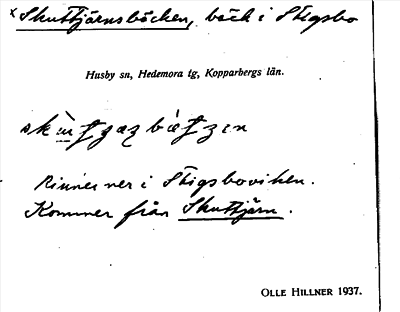 × Skuttjärnsbäcken, bäck i Stigsbo
Husby sn, Hedemora tg, Kopparbergs län.
Rinner ner i Stigsboviken.
Kommer från Skuttjärn.
OLLE HILLNER 1937.